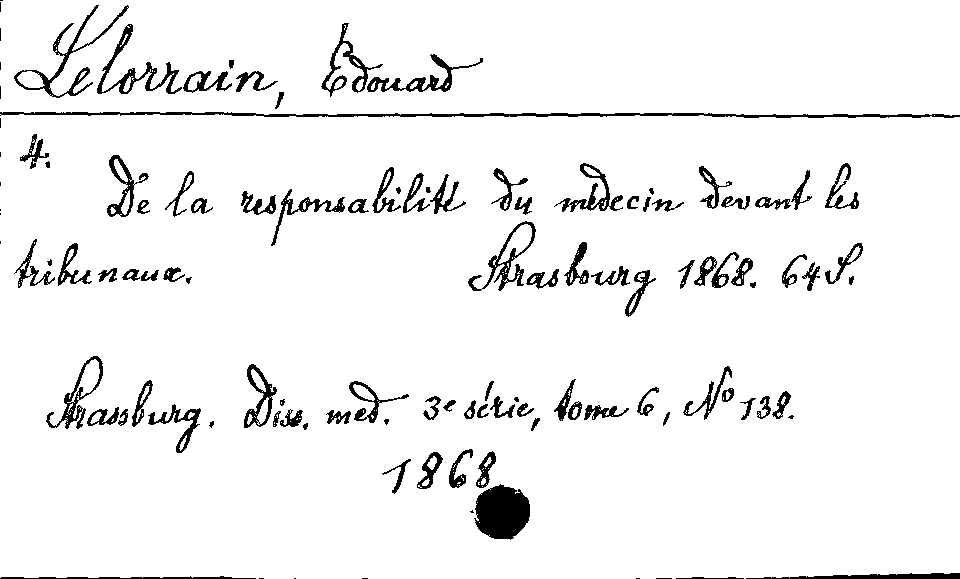 Lelorrain, Édouard
4.
De la responsabilité du médecin devant les
tribunaux. Strasbourg 1868. 64 S.
Strassburg. Diss. med. 3e série, tome 6, No 138.
1868